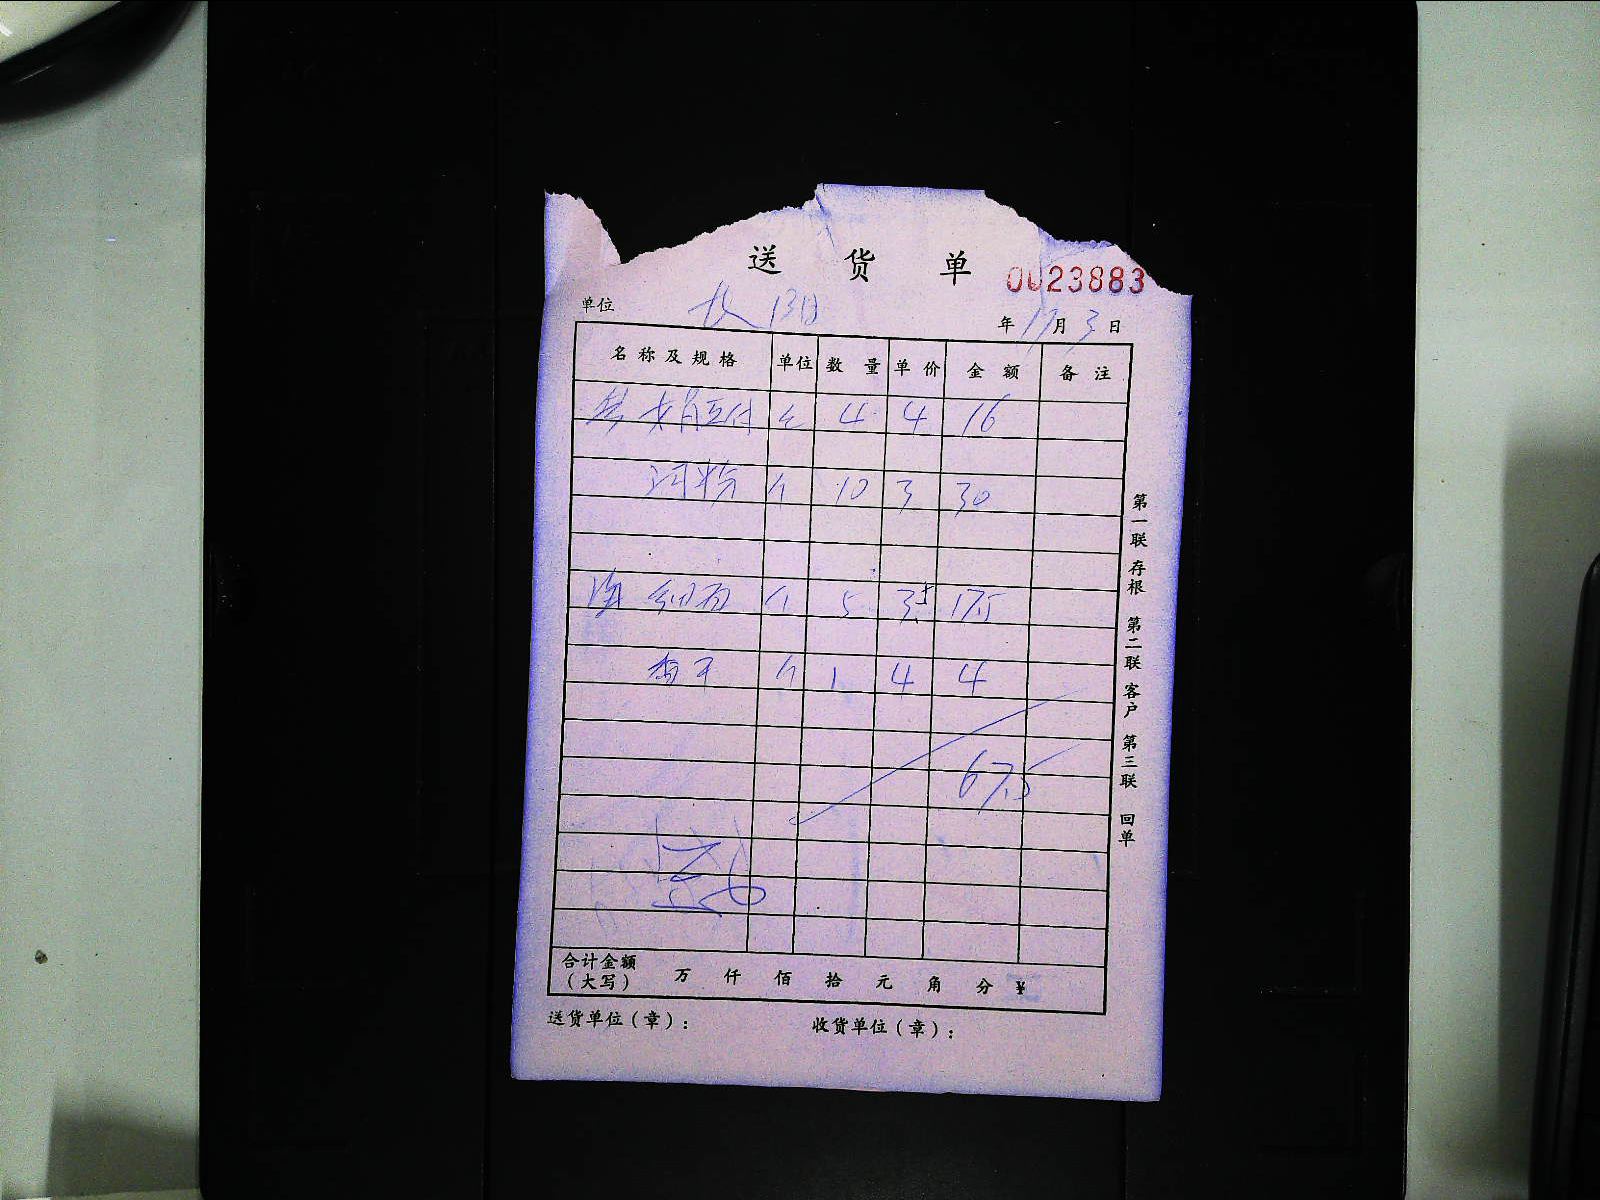 送 货 单 0023883
单位 年 月 3 日
名称及规格 单位 数量 单价 金额 备注
4 4 16
河粉 个 10 3 30
细面 个 5 3.5 17.5
个 1 4 4
67.5
合计金额（大写） 万 仟 佰 拾 元 角 分 ¥
送货单位（章）： 收货单位（章）：
第一联 存根 第二联 客户 第三联 回单